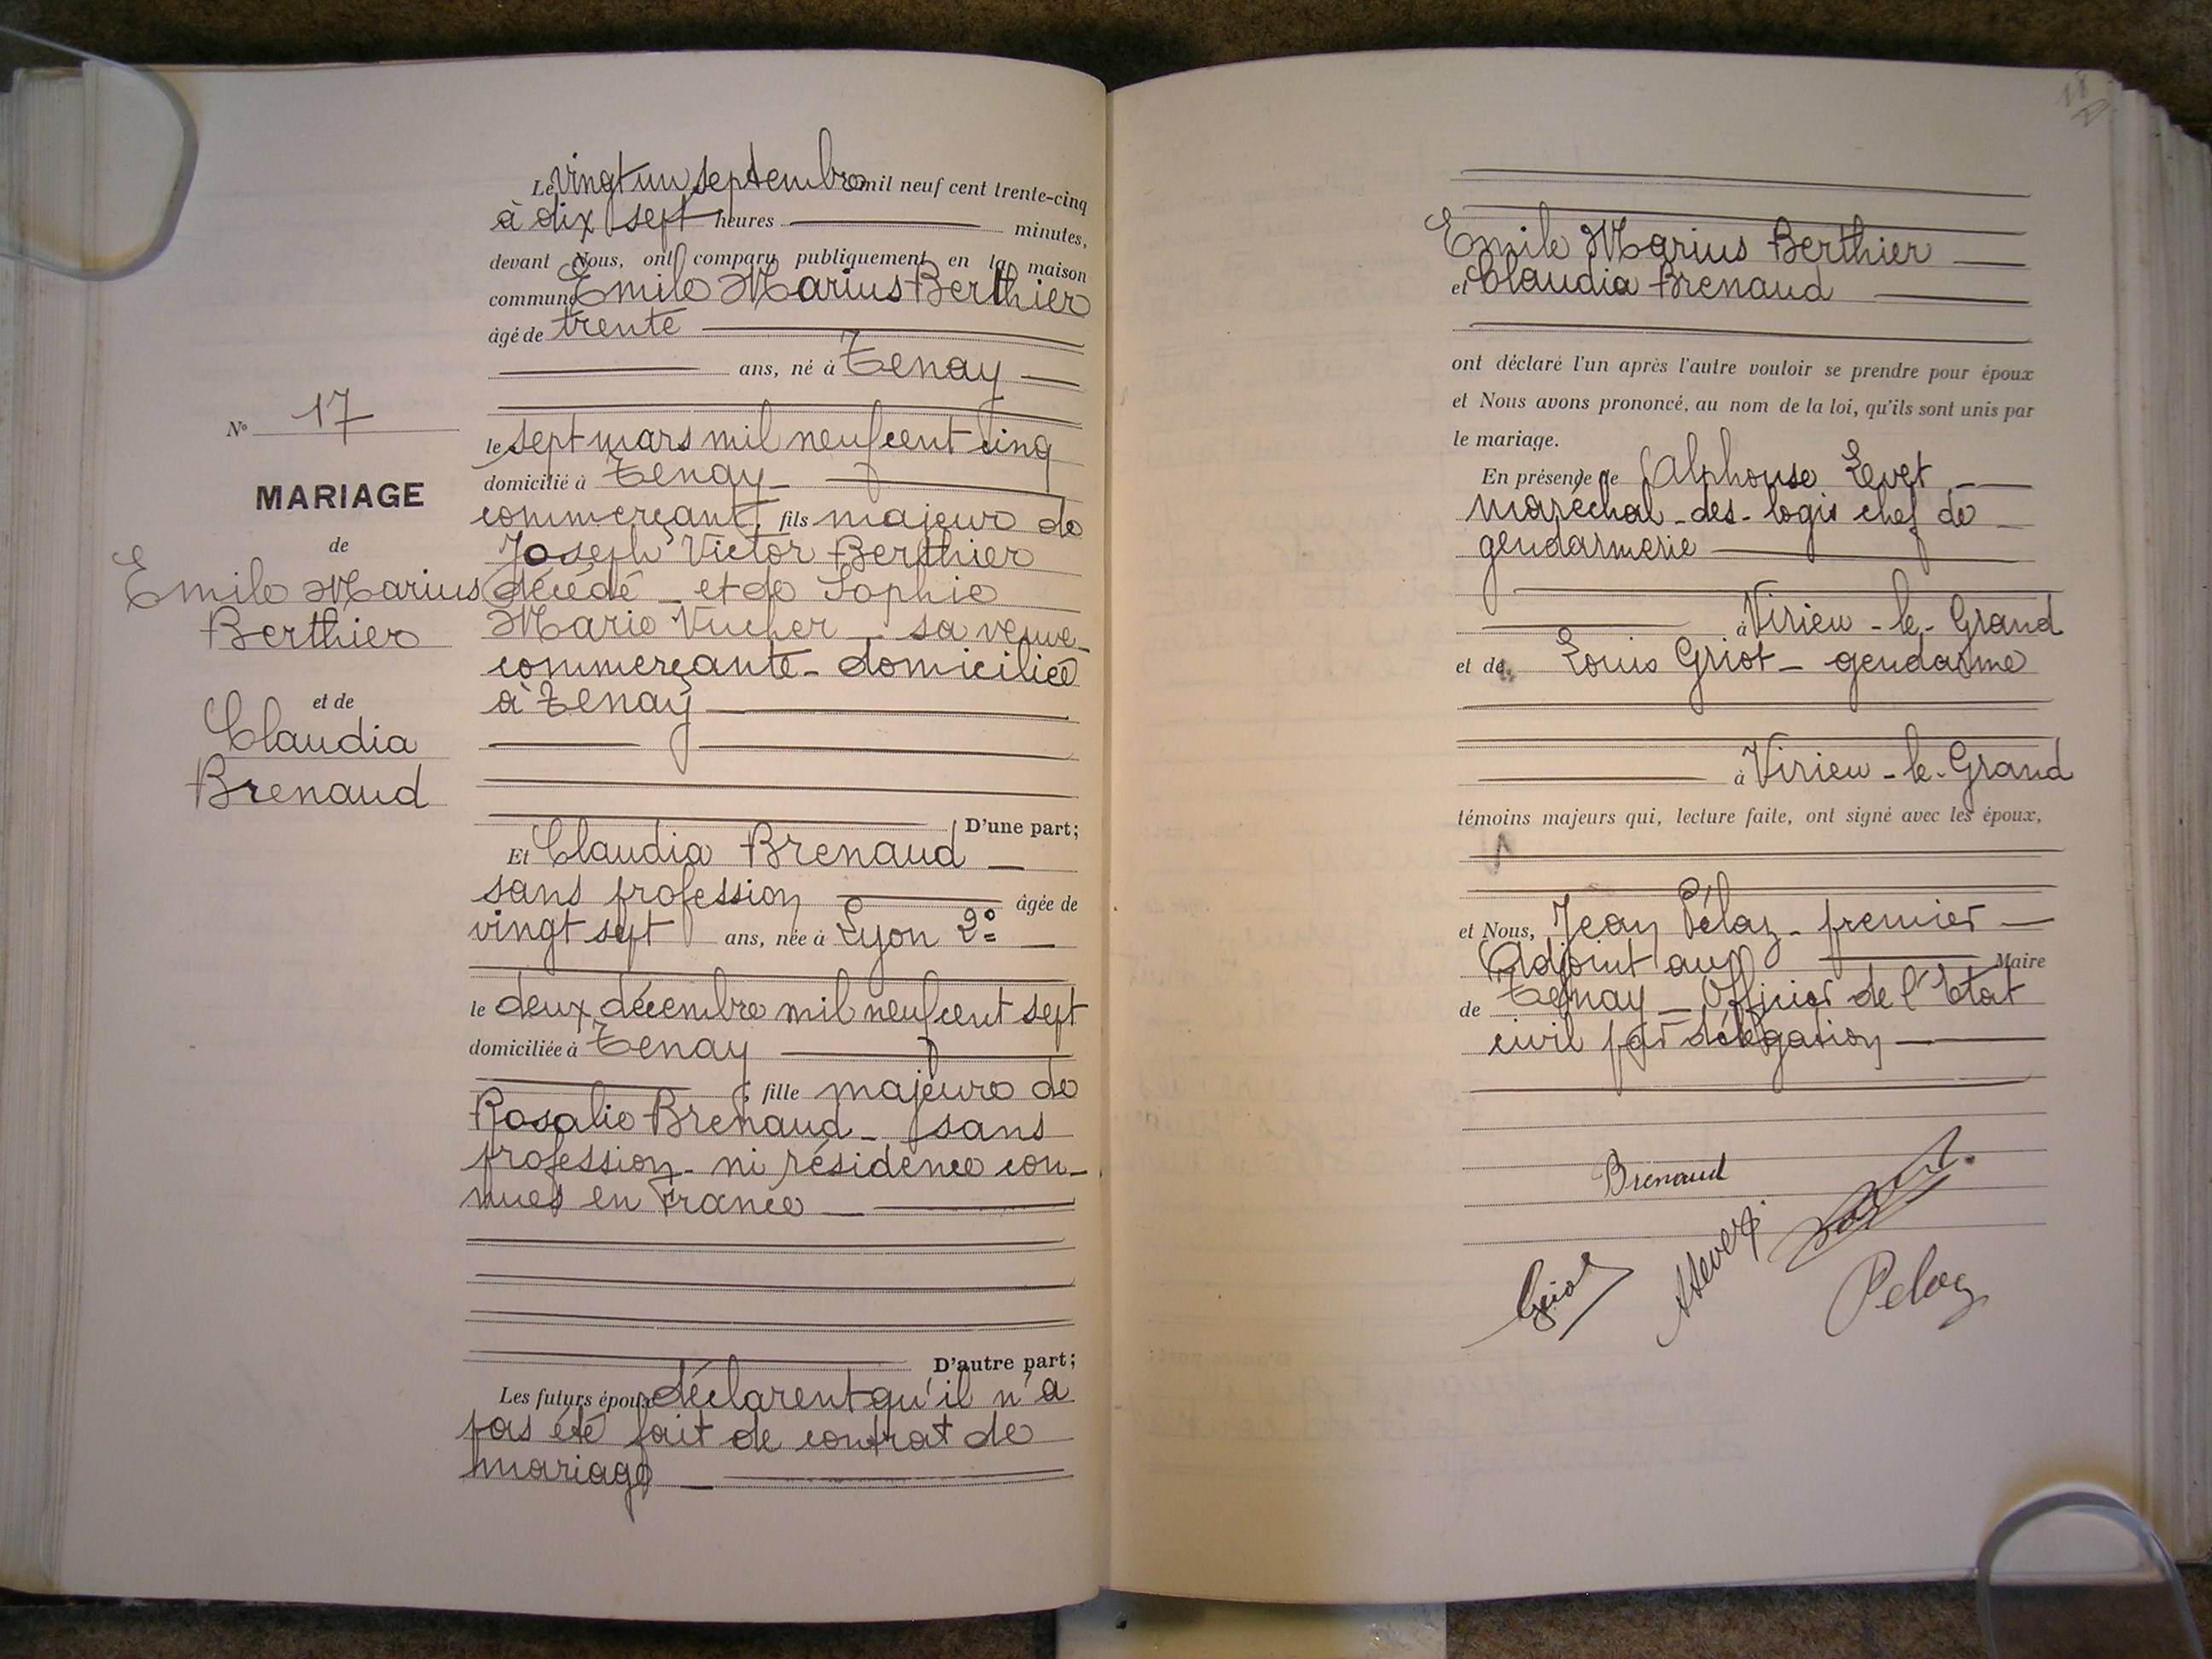 N° 17
MARIAGE
de
Emile Marius
Berthier
et de
Claudia
Brenaud
Le vingt un septembre mil neuf cent trente-cinq
à dix sept heures minutes,
devant Nous, ont comparu publiquement en la maison
commune Emile Marius Berthier
âgé de trente
ans, né à Tenay
le sept mars mil neuf cent cinq
domicilié à Tenay
commerçant, fils majeur de
Joseph Victor Berthier
décédé _ et de Sophie
Marie Vucher _ sa veuve _
commerçante _ domiciliée
à Tenay
D'une part;
Et Claudia Brenaud
sans profession âgée de
vingt sept ans, née à Lyon 2°
le deux décembre mil neuf cent sept
domiciliée à Tenay
; fille majeure de
Rosalie Brenaud _ sans
profession _ ni résidence con-
nues en France
D'autre part;
Les futurs époux déclarent qu'il n'a
pas été fait de contrat de
mariage
Emile Marius Berthier
et Claudia Brenaud
ont déclaré l'un après l'autre vouloir se prendre pour époux
et Nous avons prononcé, au nom de la loi, qu'ils sont unis par
le mariage.
En présence de Alphonse Levet
maréchal-des-logis chef de
gendarmerie
à Virieu-le-Grand
et de Louis Griot _ gendarme
à Virieu-le-Grand
témoins majeurs qui, lecture faite, ont signé avec les époux,
et Nous, Jean Pélaz _ premier
Adjoint au Maire
de Tenay _ Officier de l'Etat
civil par délégation
Brenaud
Griot
Pelaz